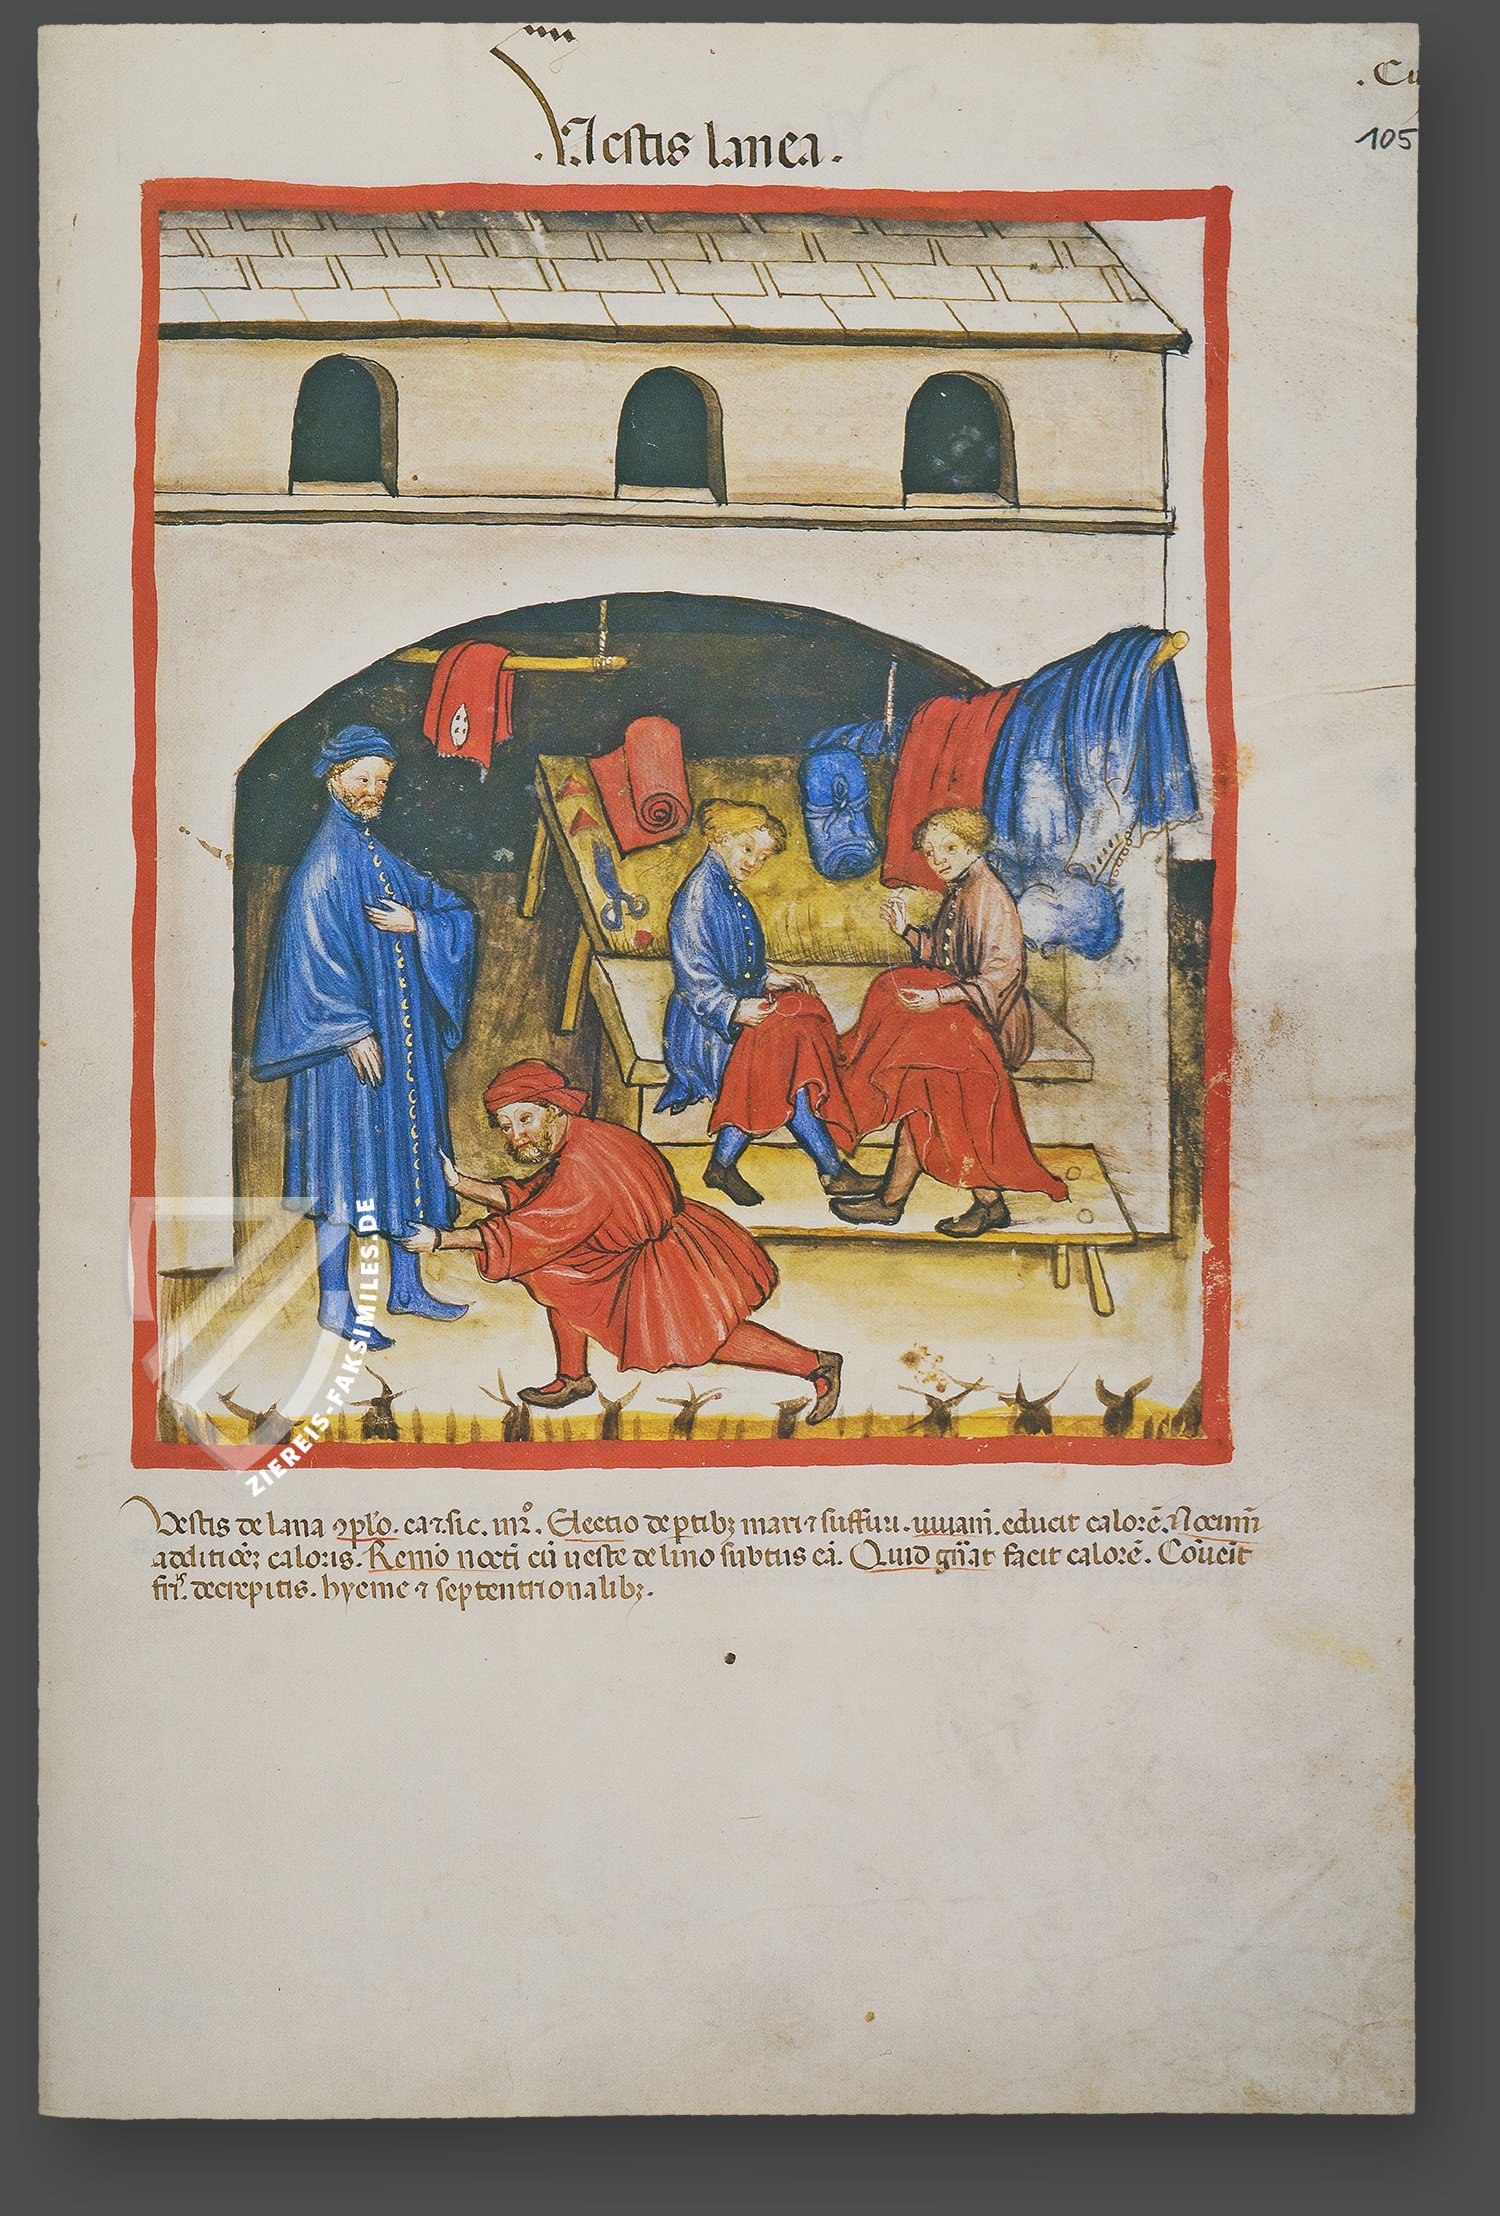 .Cu
105
.Vestis lanea.
Vestis de lana ꝯplo. ca. ⁊ sic. in 2°. Electio de ꝑtibꝫ mari ⁊ suffuri. iuuam̄. educit calorē. Nocum̄
additioēꝫ caloris. Remō nocti cū ueste de lino subtus cā. Quid gn̄at facit calorē. Cōuenit
fri. decrepitis. hyeme ⁊ septentrionalibꝫ.
ZIEREIS-FAKSIMILES.DE